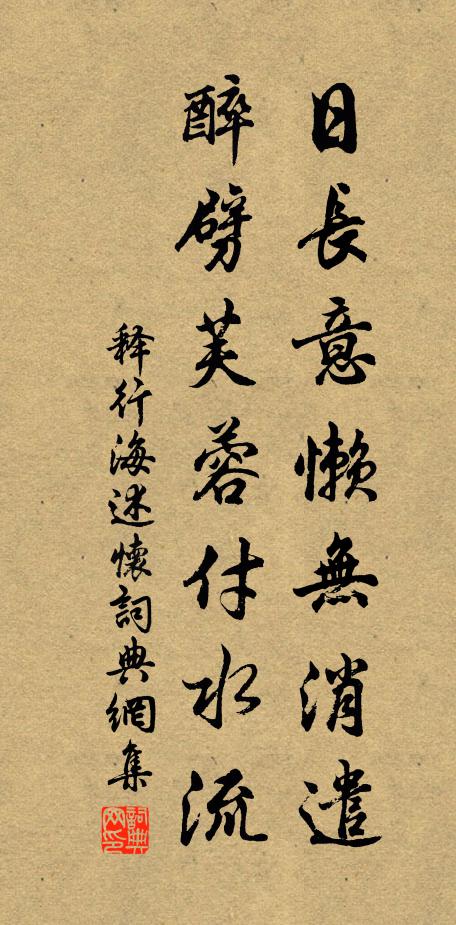 日長意懶無消遣
醉劈芙蓉付水流
释行海述懷詞典網集
詞典網印